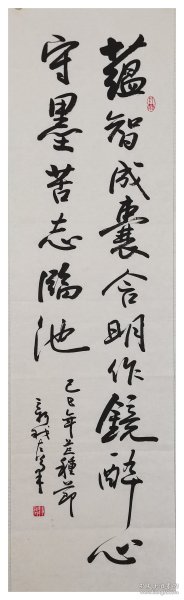 蕴智成囊含明作镜醉心
守墨苦志临池
己巳年芒种节